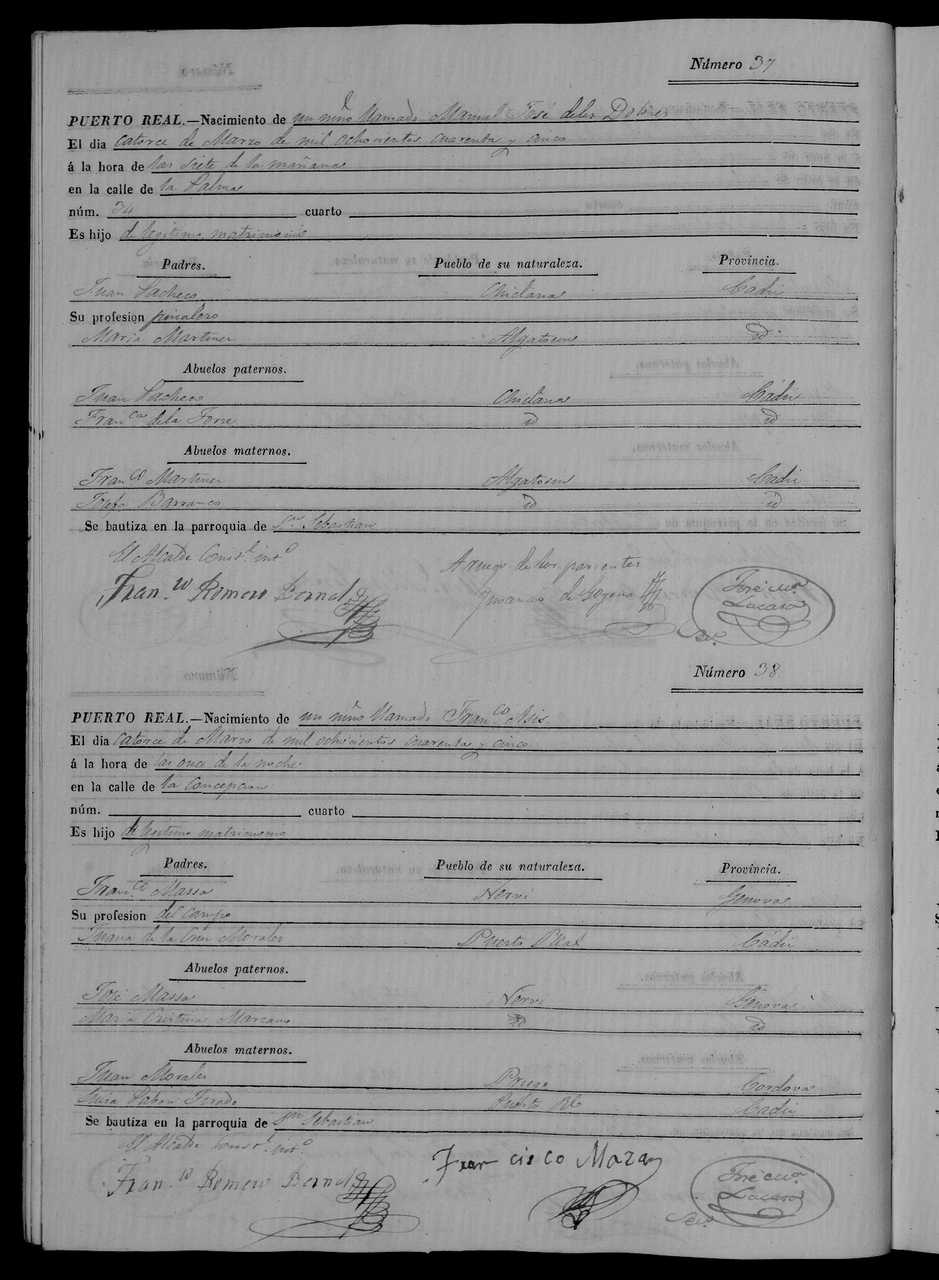 Número 37
PUERTO REAL.—Nacimiento de un niño llamado Manuel José de los Dolores
El dia catorce de Marzo de mil ochocientos cuarenta y cinco
á la hora de las siete de la mañana
en la calle de la Palma
núm. 34 cuarto
Es hijo de legitimo matrimonio
Padres. Pueblo de su naturaleza. Provincia.
Juan Pacheco Chiclana Cadiz
Su profesion
Maria Martinez Algatosin id
Abuelos paternos.
Juan Pacheco Chiclana Cádiz
Fran.ca de la Torre id id
Abuelos maternos.
Fran.co Martinez Algatosin Cadiz
Josefa Barranco id id
Se bautiza en la parroquia de Sn Sebastian
El Alcalde Const.l int.o
A ruego de los parientes
Fran.co Romero Bernal
José M.a Lucaso
Sri.o
Número 38
PUERTO REAL.—Nacimiento de un niño llamado Fran.co Asis
El dia catorce de Marzo de mil ochocientos cuarenta y cinco
á la hora de las once de la noche
en la calle de la Concepcion
núm. cuarto
Es hijo de legitimo matrimonio
Padres. Pueblo de su naturaleza. Provincia.
Fran.co Massa Nervi Genova
Su profesion del campo
Juana de la Cruz Morales Puerto Real Cádiz
Abuelos paternos.
José Massa Nervi Genova
Maria Cristina Marzano id id
Abuelos maternos.
Juan Morales Priego Cordova
Tirado Puerto Rl Cadiz
Se bautiza en la parroquia de Sn Sebastian
El Alcalde Const.l int.o
Francisco Maza
Fran.co Romero Bernal
José M.a Lucaso
Sri.o